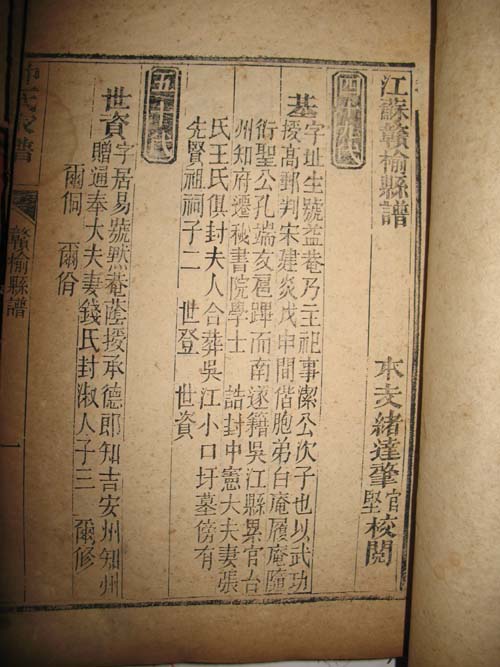 江蘇贛榆縣譜
本支緒達肇官堅校閱
四十九世
基 字址生號益菴乃主祀事潔公次子也以武功
授高郵判宋建炎戊申間偕胞弟白庵履庵隨
衍聖公孔端友扈蹕而南遂籍吳江縣累官台
州知府遷秘書院學士 誥封中憲大夫妻張
氏王氏俱封夫人合葬吳江小口圩墓傍有
先賢祖祠子二 世登 世資
五十世
世資 字居易號默菴蔭授承德郎知吉安州知州
贈通奉大夫妻錢氏封淑人子三 爾修
爾侗 爾佾
氏家譜
贛榆縣譜
一